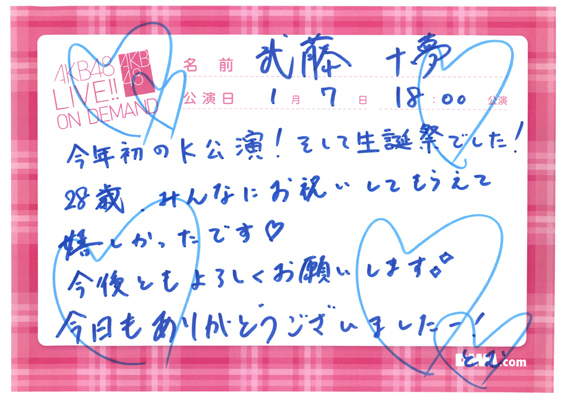 AKB48
LIVE!!
ON DEMAND
AKB
48
名前 武藤 十夢
公演日 1月7日 18:00 公演
今年初のK公演！そして生誕祭でした！
28歳、みんなにお祝いしてもらえて
嬉しかったです♡
今後ともよろしくお願いします
今日もありがとうございましたー！
とむ
.com